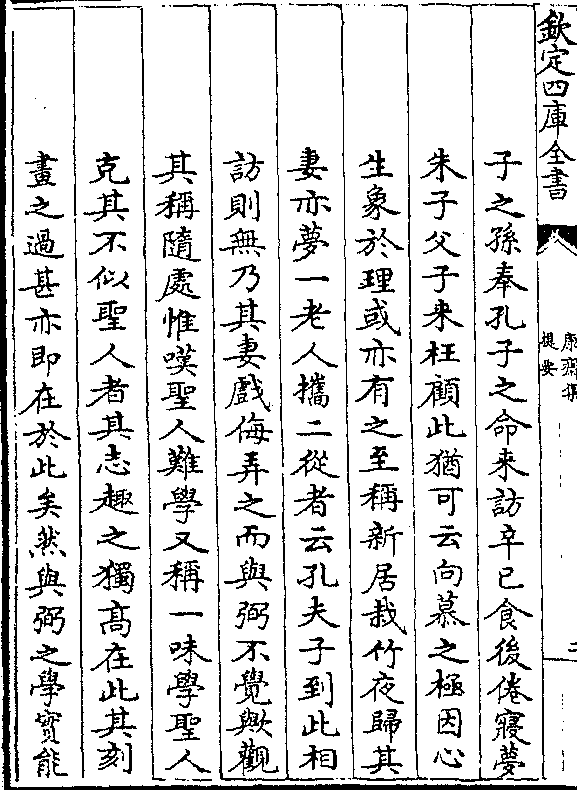 欽定四庫全書
康齋集
提要
二
子之孫奉孔子之命來訪辛巳食後倦寢夢
朱子父子來枉顧此猶可云向慕之極因心
生象於理或亦有之至稱新居栽竹夜歸其
妻亦夢一老人攜二從者云孔夫子到此相
訪則無乃其妻戲侮弄之而與弼不覺歟觀
其稱隨處惟嘆聖人難學又稱一味學聖人
克其不似聖人者其志趣之獨髙在此其刻
畫之過甚亦即在於此矣然與弼之學實能